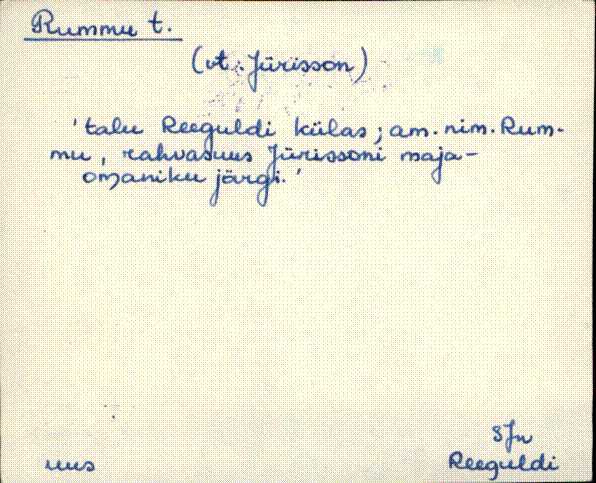 Rummu t.
(vt. Jürisson)
'talu Reeguldi külas; am. nim. Rum-
mu, rahvasuus Jürissoni maja-
omaniku järgi.'
SJn
uus Reeguldi